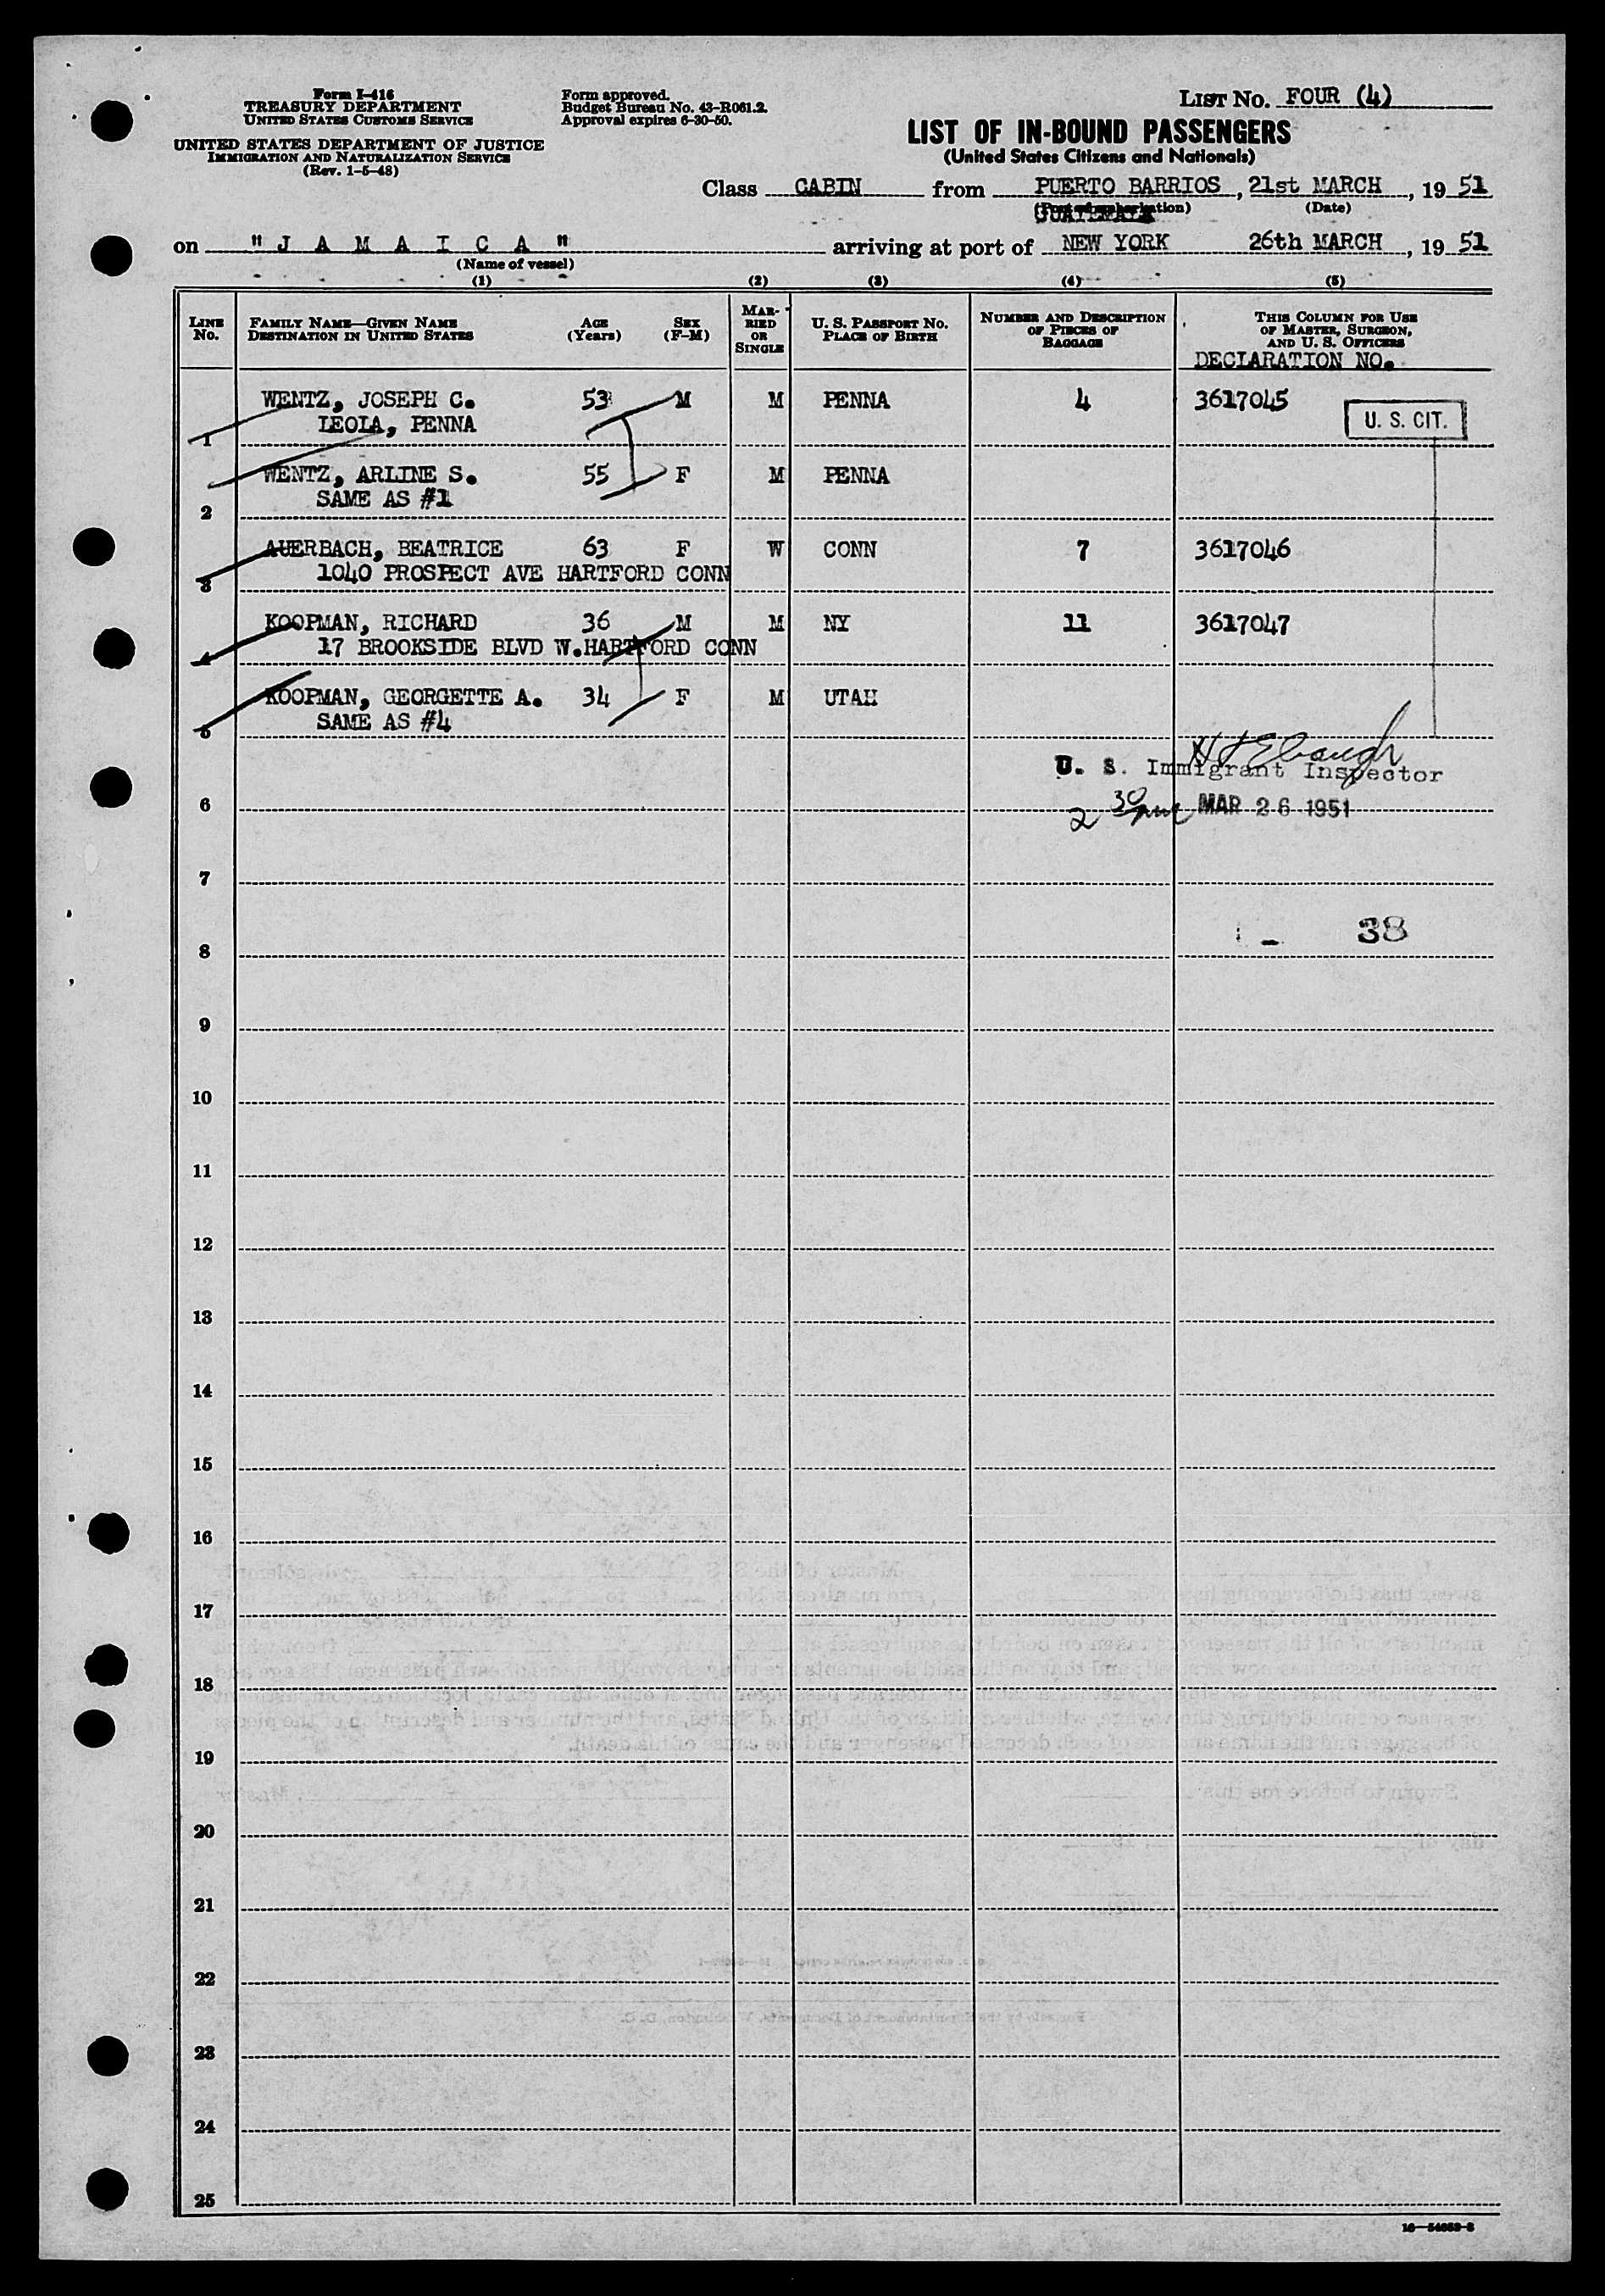 Form I-416
TREASURY DEPARTMENT
UNITED STATES CUSTOMS SERVICE
UNITED STATES DEPARTMENT OF JUSTICE
IMMIGRATION AND NATURALIZATION SERVICE
(Rev. 1-5-48)
Form approved.
Budget Bureau No. 43-R061.2.
Approval expires 6-30-50.
LIST No. FOUR (4)
LIST OF IN-BOUND PASSENGERS
(United States Citizens and Nationals)
Class CABIN from PUERTO BARRIOS, 21st MARCH, 19 51
GUATEMALA (Date)
on "J A M A I C A" arriving at port of NEW YORK 26th MARCH, 19 51
(Name of vessel)
(1) (2) (3) (4) (5)
LINE No. FAMILY NAME—GIVEN NAME DESTINATION IN UNITED STATES AGE (Years) SEX (F-M) MARRIED OR SINGLE U. S. PASSPORT No. PLACE OF BIRTH NUMBER AND DESCRIPTION OF PIECES OF BAGGAGE THIS COLUMN FOR USE OF MASTER, SURGEON, AND U. S. OFFICERS
DECLARATION NO.
WENTZ, JOSEPH C. 53 M M PENNA 4 3617045
1 LEOLA, PENNA U. S. CIT.
WENTZ, ARLINE S. 55 F M PENNA
2 SAME AS #1
AUERBACH, BEATRICE 63 F W CONN 7 3617046
3 1040 PROSPECT AVE HARTFORD CONN
KOOPMAN, RICHARD 36 M M NY 11 3617047
4 17 BROOKSIDE BLVD W.HARTFORD CONN
KOOPMAN, GEORGETTE A. 34 F M UTAH
5 SAME AS #4
U. S. Immigrant Inspector
6 2 30 pm MAR 26 1951
7
38
8
9
10
11
12
13
14
15
16
17
18
19
20
21
22
23
24
25